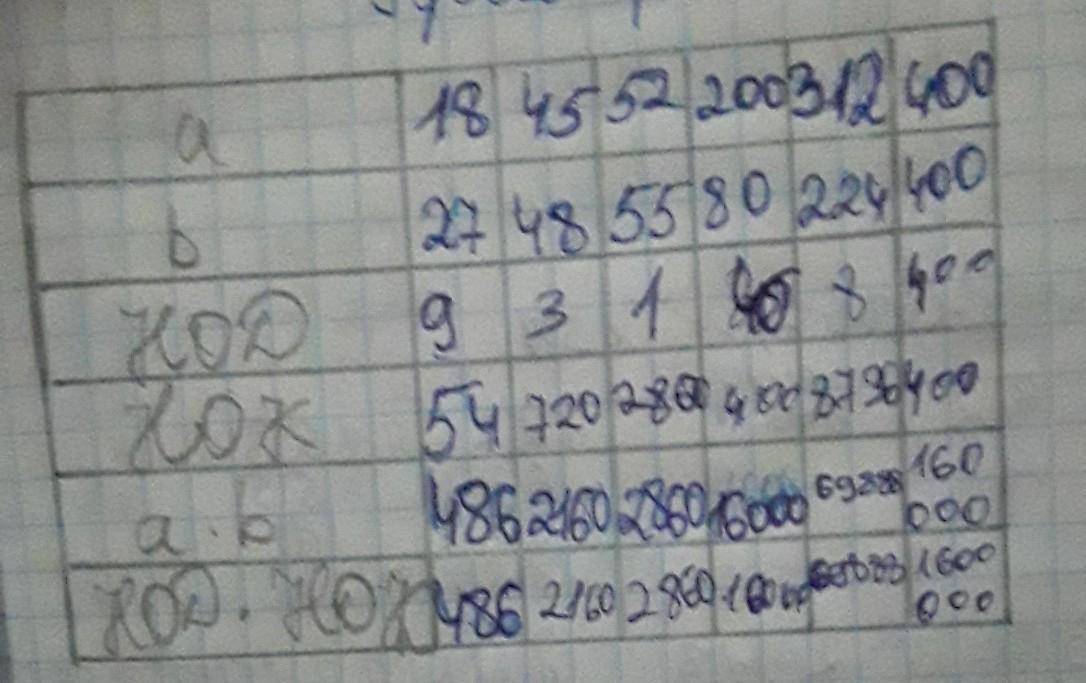 a 18 45 52 200 312 400
b 27 48 55 80 224 400
НОД 9 3 1 40 8 400
НОК 54 720 2860 400 8736 400
a · b 486 2160 2860 16000 69888 160 000
НОД · НОК 486 2160 2860 1600 000